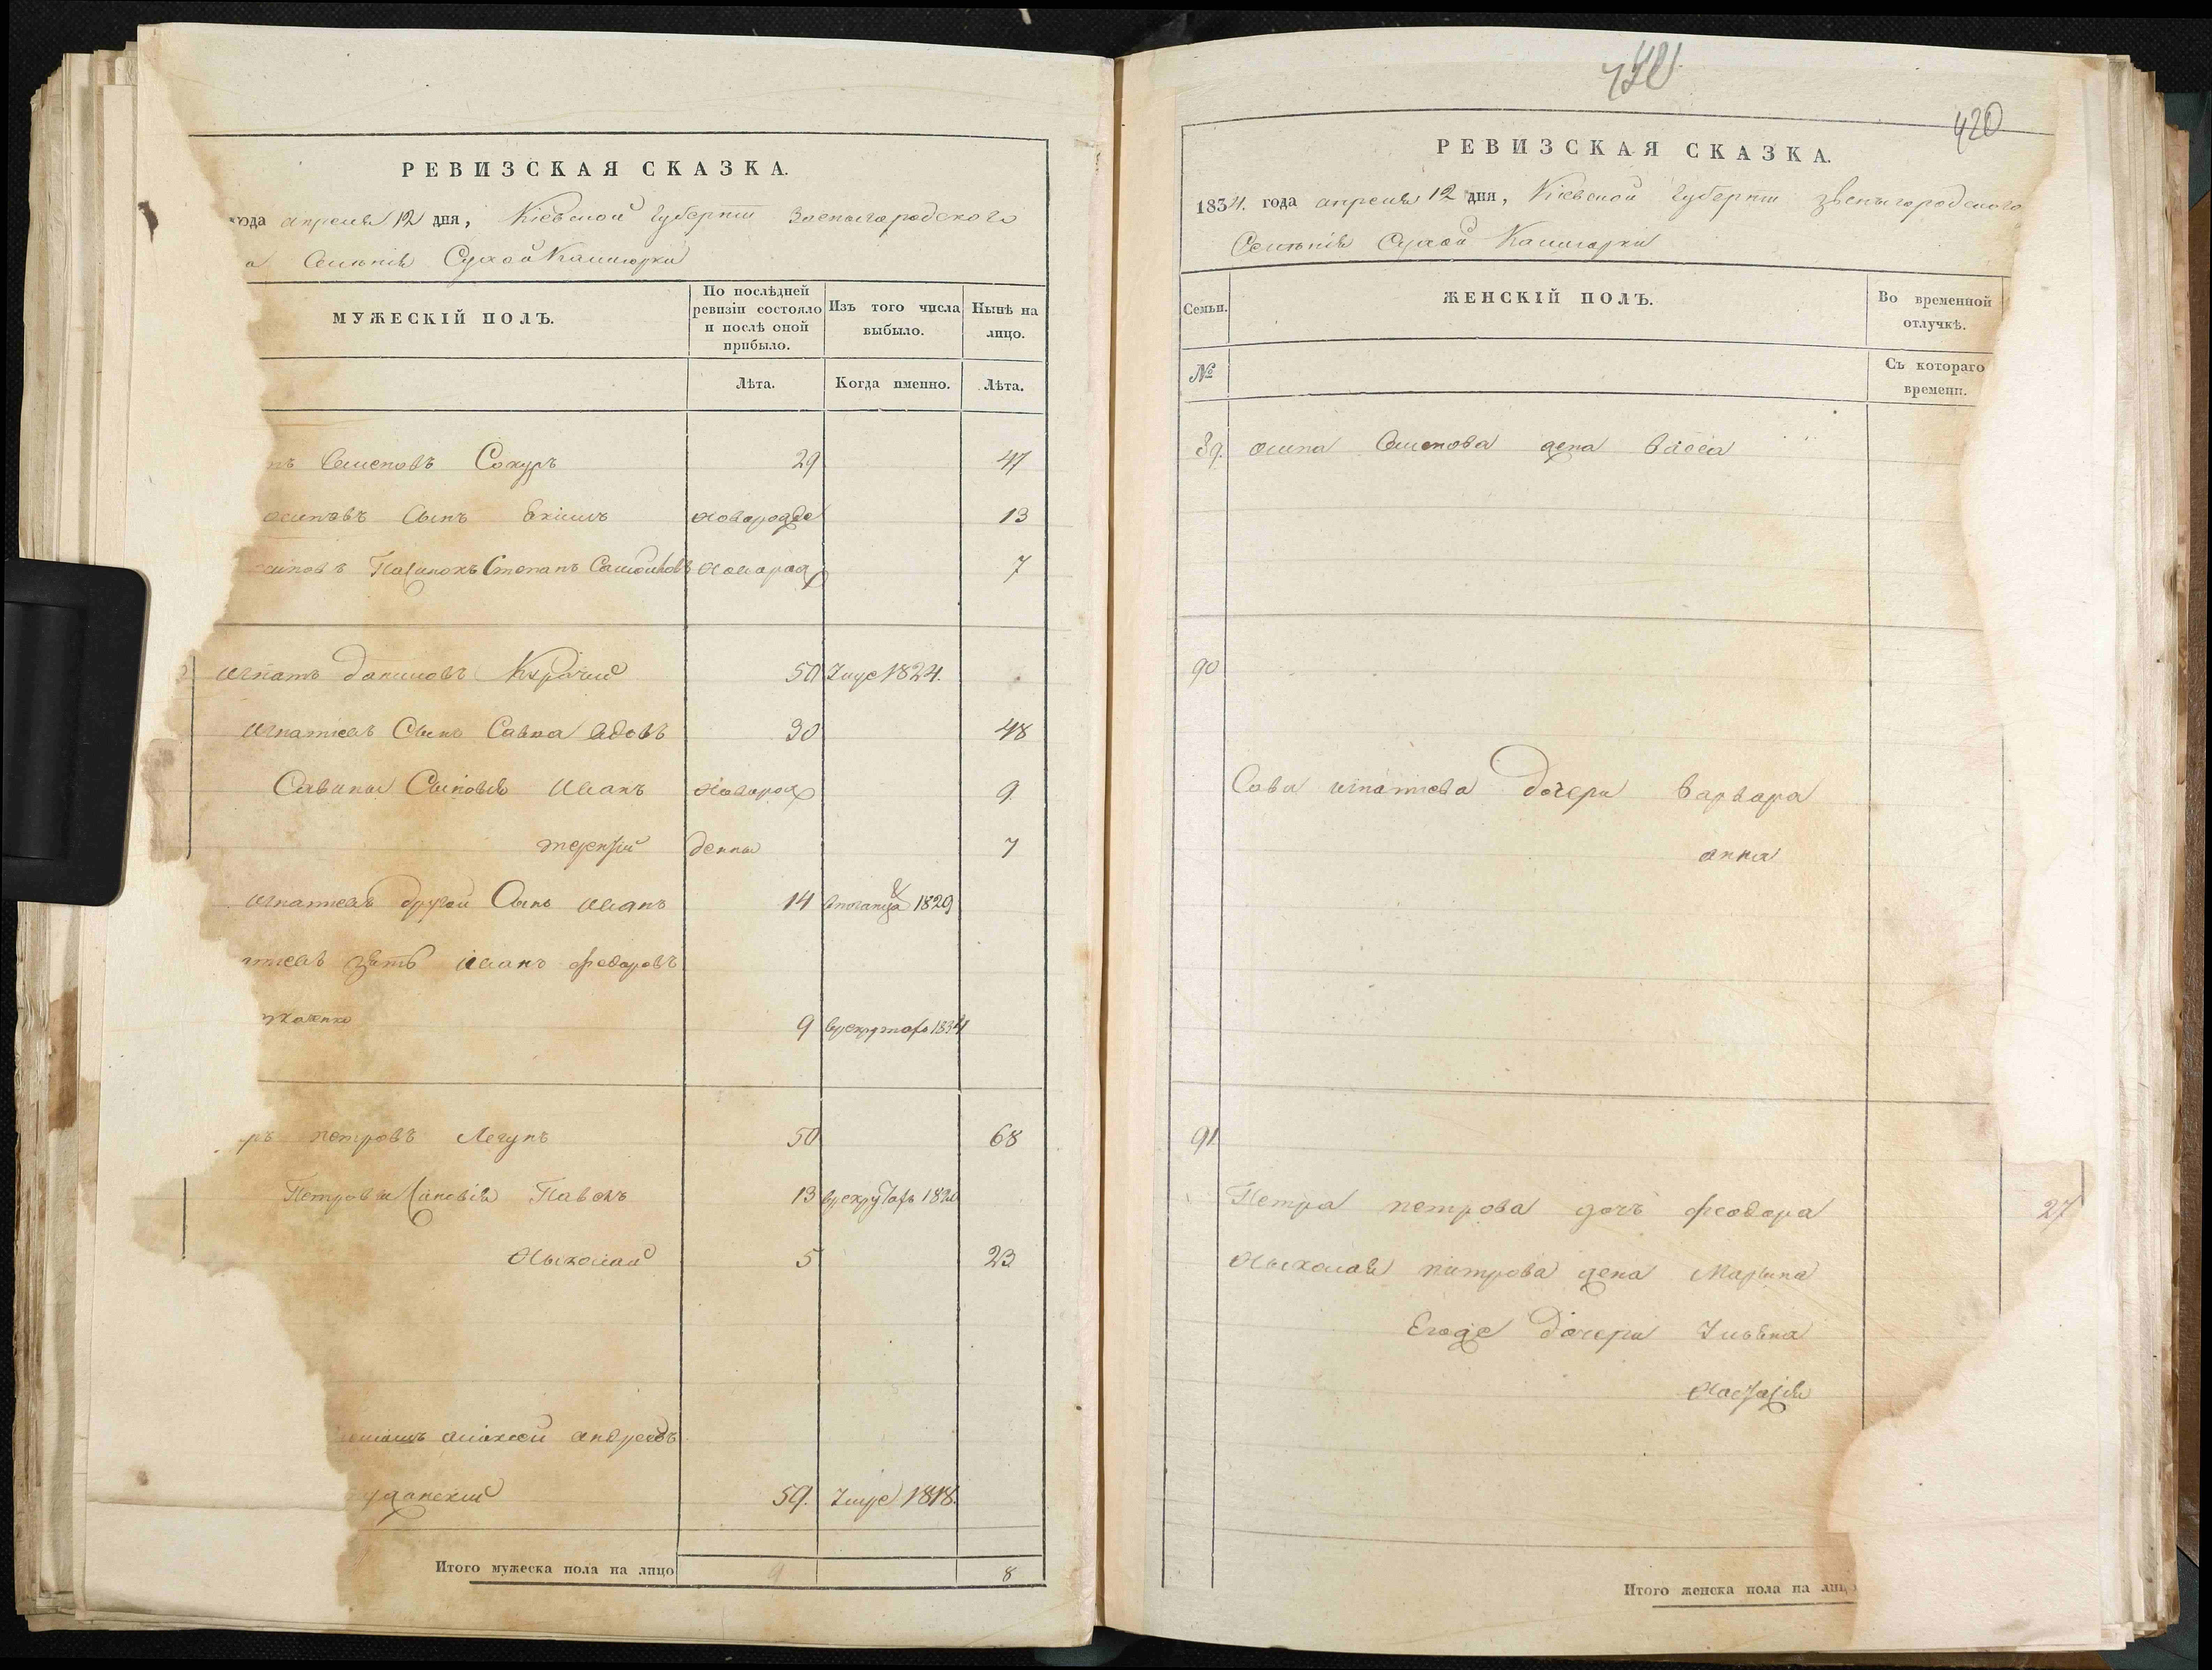 РЕВИЗСКАЯ СКАЗКА.
года апреля 12 дня, Кіевской Губерніи Звенигородского
Селенія Сухой Калигорки
МУЖЕСКІЙ ПОЛЪ.
По послѣдней ревизіи состояло и послѣ оной прибыло.
Изъ того числа выбыло.
Нынѣ на лицо.
Лѣта.
Когда именно.
Лѣта.
Семеновъ Сокуръ 29 47
осиповъ Сынъ Екимъ новорожде 13
Пасинокъ Степанъ новорож 7
игнатъ даниловъ 50 Умре 1824.
игнатіевъ Сынъ Савка 30 48
Савины Сыновья иванъ новорож 9
терентій денны 7
игнатіевъ другой Сынъ иванъ 14 1829
зять иванъ федоровъ
9 врекруты 1834
петровъ Легунъ 50 68
Петровы Сыновья Павелъ 13 врекруты
Николай 5 23
алексей андреевъ
59. Умре 1818.
Итого мужеска пола на лицо 9 8
421
420
РЕВИЗСКАЯ СКАЗКА.
1834. года апреля 12 дня, Кіевской Губерніи звенигородского
Селенія Сухой Калигорки
Семьи.
ЖЕНСКІЙ ПОЛЪ.
Во временной отлучкѣ.
№
Съ котораго времени.
89. осипа Семенова жена Васса
90
Савы игнатіева дочери варвара
анна
91
Петра петрова дочь феодора 27
Николая петрова жена Марина
Егоже дочери
Настасія
Итого женска пола на лицо